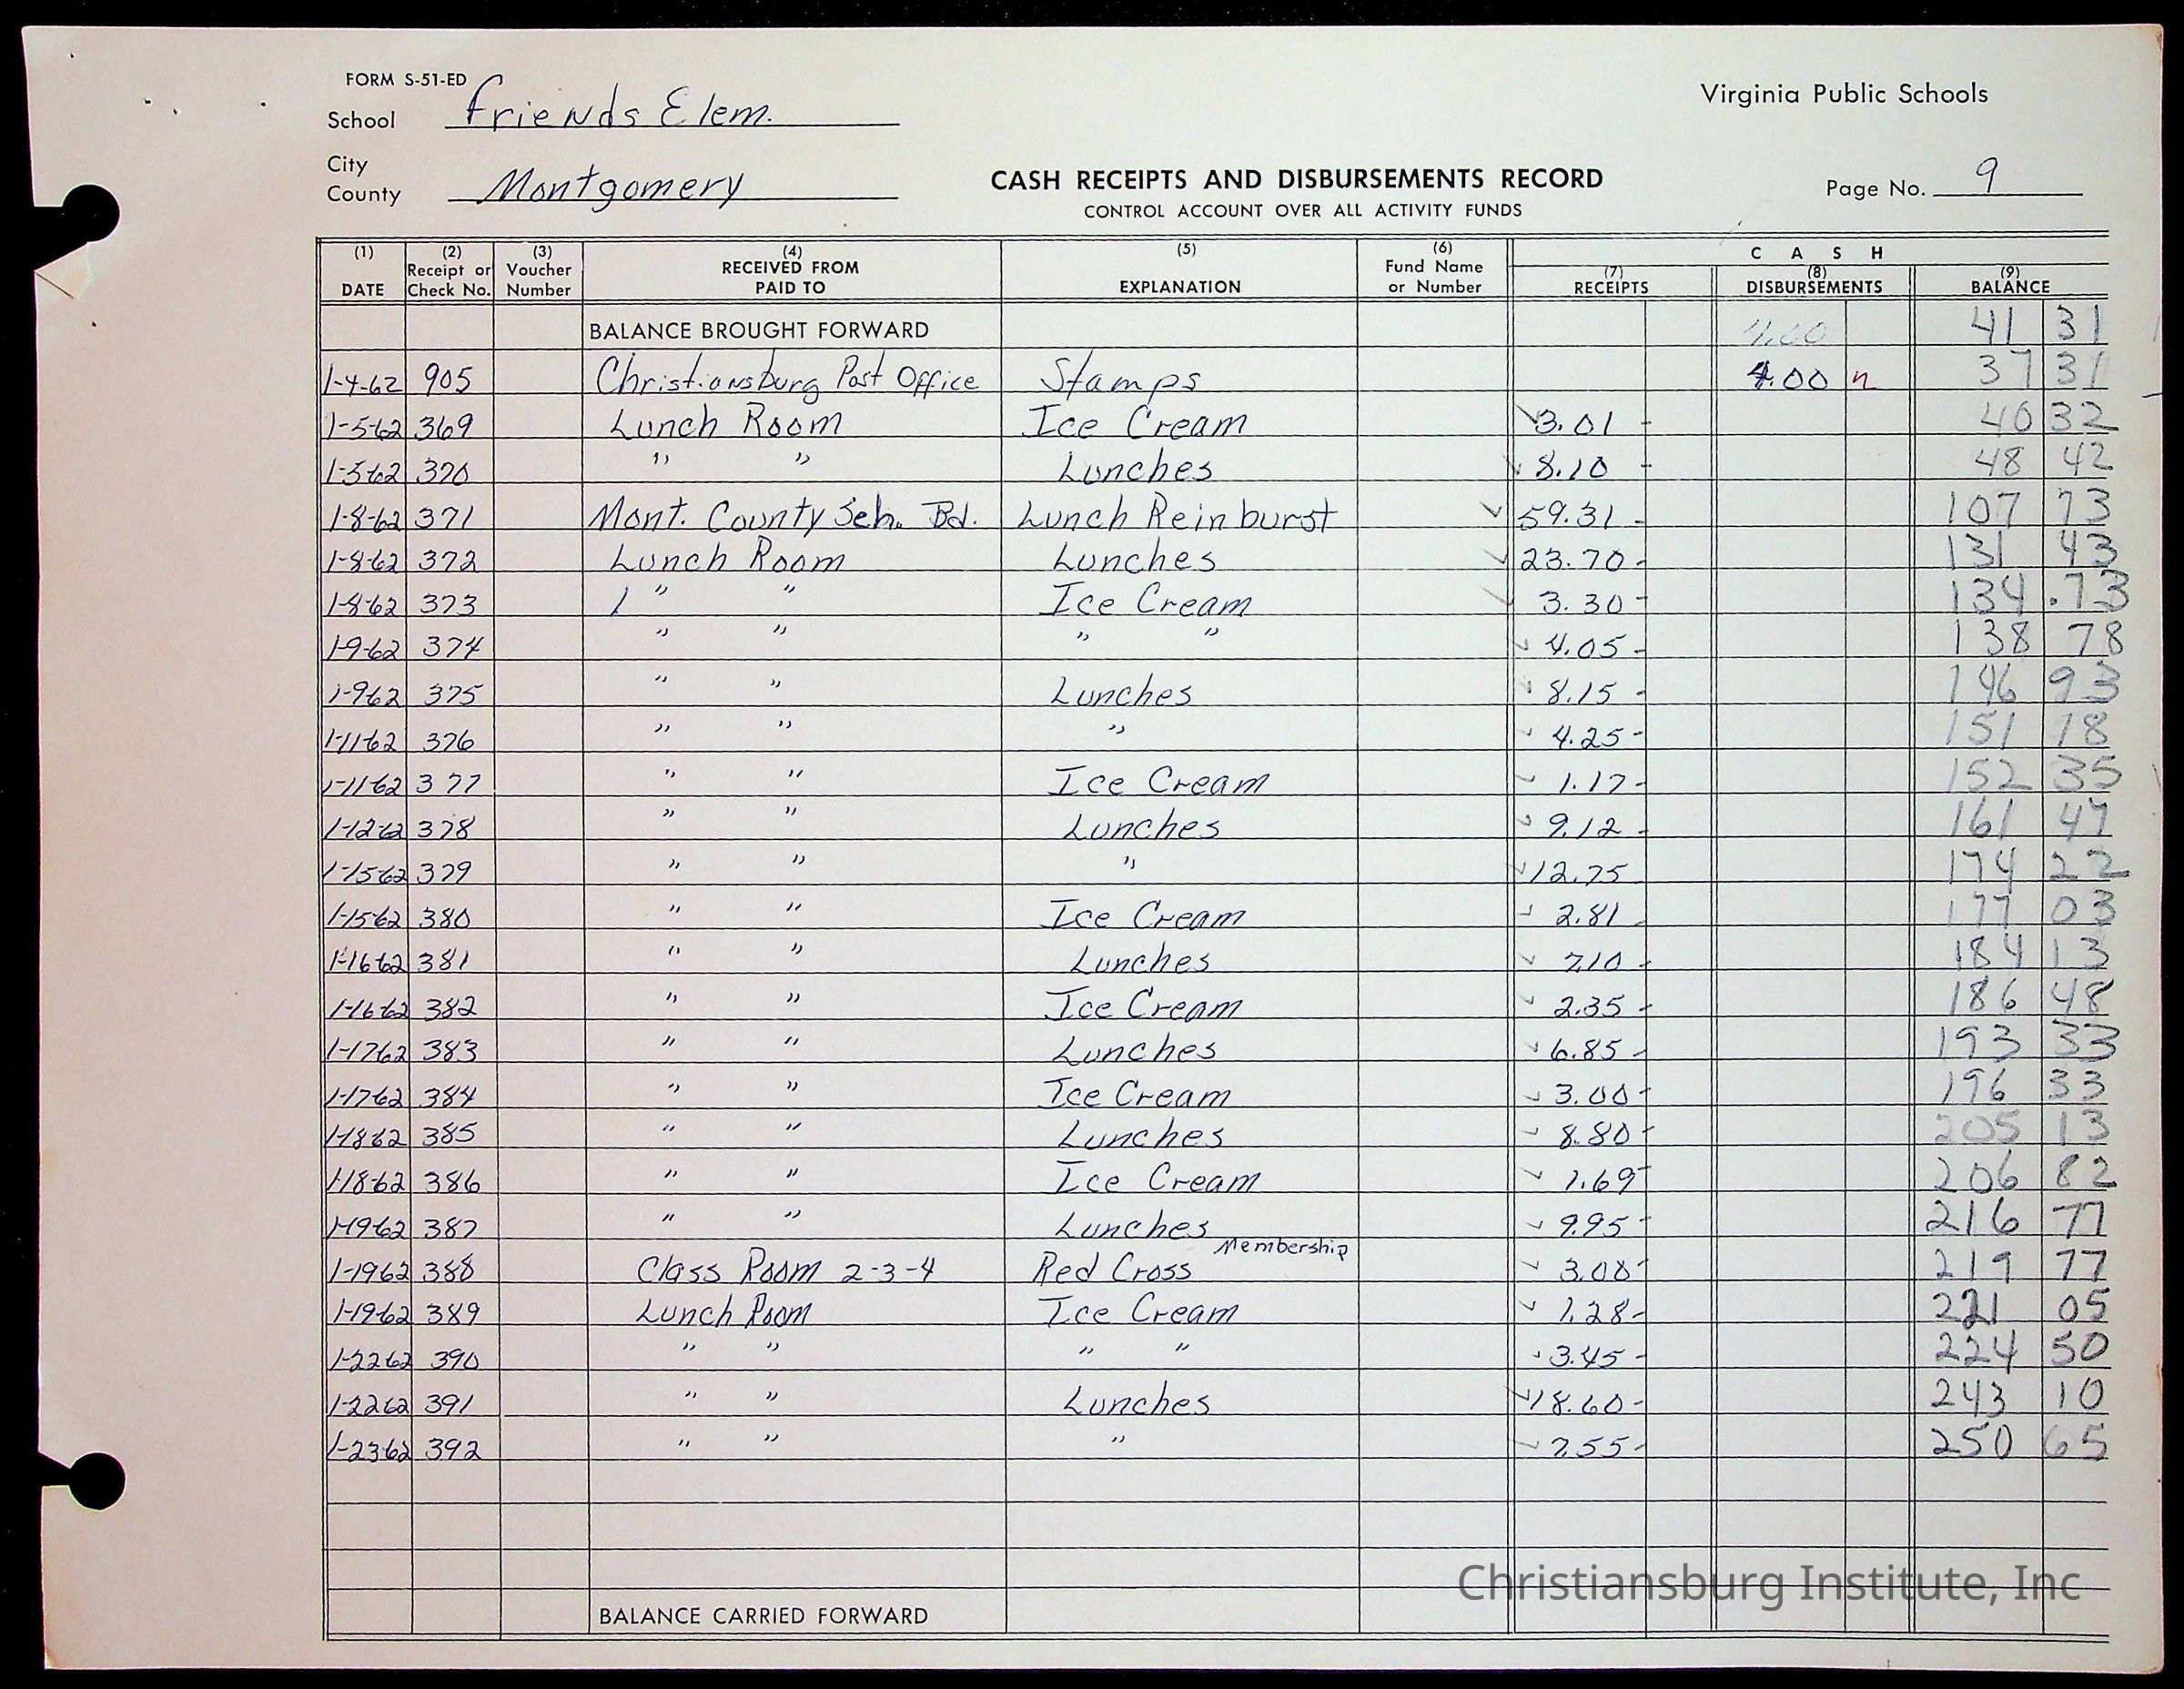 FORM S-51-ED
Virginia Public Schools
School Friends Elem.
City
County Montgomery
CASH RECEIPTS AND DISBURSEMENTS RECORD
Page No. 9
CONTROL ACCOUNT OVER ALL ACTIVITY FUNDS
(1) DATE (2) Receipt or Check No. (3) Voucher Number (4) RECEIVED FROM PAID TO (5) EXPLANATION (6) Fund Name or Number CASH (7) RECEIPTS (8) DISBURSEMENTS (9) BALANCE
BALANCE BROUGHT FORWARD 4.00 41 31
1-4-62 905 Christiansburg Post Office Stamps 4.00 n 37 31
1-5-62 369 Lunch Room Ice Cream 3.01 - 40 32
1-5-62 370 " " Lunches 8.10 - 48 42
1-8-62 371 Mont. County Sch. Bd. Lunch Reinburst 59.31 - 107 73
1-8-62 372 Lunch Room Lunches 23.70 - 131 43
1-8-62 373 " " Ice Cream 3.30 - 134 .73
1-9-62 374 " " " " 4.05 - 138 78
1-9-62 375 " " Lunches 8.15 - 146 93
1-11-62 376 " " " 4.25 - 151 18
1-11-62 377 " " Ice Cream 1.17 - 152 35
1-12-62 378 " " Lunches 9.12 - 161 47
1-15-62 379 " " " 12.75 174 22
1-15-62 380 " " Ice Cream 2.81 - 177 03
1-16-62 381 " " Lunches 7.10 - 184 13
1-16-62 382 " " Ice Cream 2.35 - 186 48
1-17-62 383 " " Lunches 6.85 - 193 33
1-17-62 384 " " Ice Cream 3.00 - 196 33
1-18-62 385 " " Lunches 8.80 - 205 13
1-18-62 386 " " Ice Cream 1.69 - 206 82
1-19-62 387 " " Lunches 9.95 - 216 77
1-19-62 388 Class Room 2-3-4 Red Cross Membership 3.00 - 219 77
1-19-62 389 Lunch Room Ice Cream 1.28 - 221 05
1-22-62 390 " " " " 3.45 - 224 50
1-22-62 391 " " Lunches 18.60 - 243 10
1-23-62 392 " " " 7.55 - 250 65
Christiansburg Institute, Inc
BALANCE CARRIED FORWARD